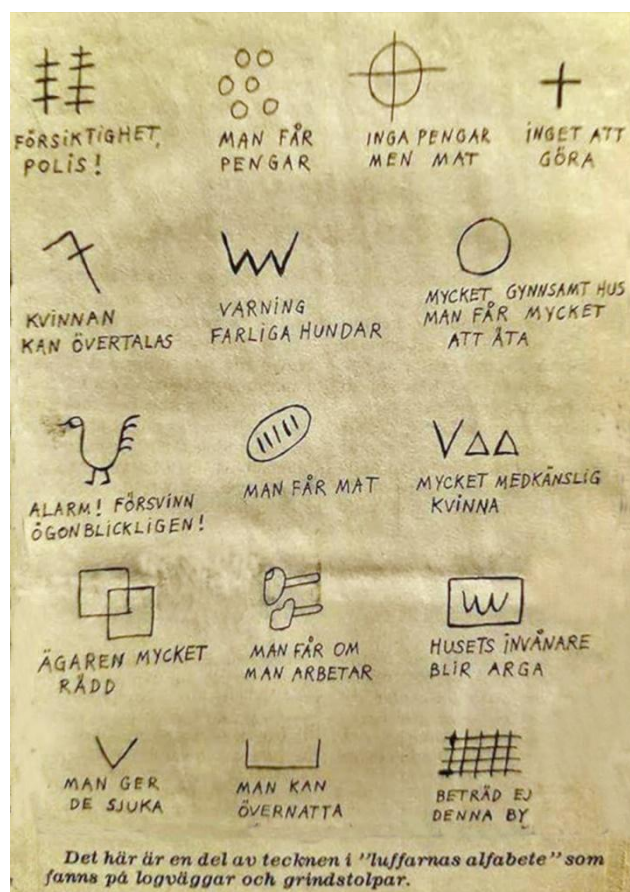 FÖRSIKTIGHET,
POLIS!
MAN FÅR
PENGAR
INGA PENGAR
MEN MAT
INGET ATT
GÖRA
KVINNAN
KAN ÖVERTALAS
VARNING
FARLIGA HUNDAR
MYCKET GYNNSAMT HUS
MAN FÅR MYCKET
ATT ÄTA
ALARM! FÖRSVINN
ÖGONBLICKLIGEN!
MAN FÅR MAT
MYCKET MEDKÄNSLIG
KVINNA
ÄGAREN MYCKET
RÄDD
MAN FÅR OM
MAN ARBETAR
HUSETS INVÅNARE
BLIR ARGA
MAN GER
DE SJUKA
MAN KAN
ÖVERNATTA
BETRÄD EJ
DENNA BY
Det här är en del av tecknen i "luffarnas alfabete" som
fanns på logväggar och grindstolpar.